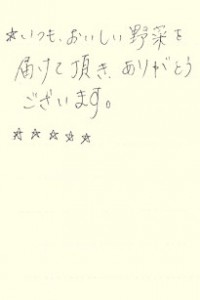 ☆いつも、おいしい野菜を
届けて頂き、ありがとう
ございます。
☆☆☆☆☆